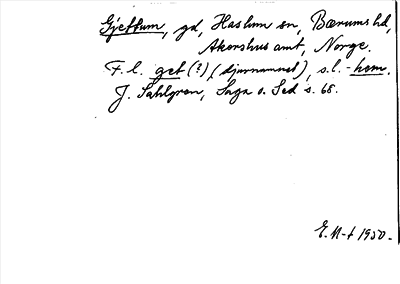 Gjettum, gd, Haslum sn, Bærums hd,
Akershus amt, Norge.
F. l. get (?) (djurnamnet), s. l. -hem.
J. Sahlgren, Saga o. Sed s. 68.
E. N-t 1950.